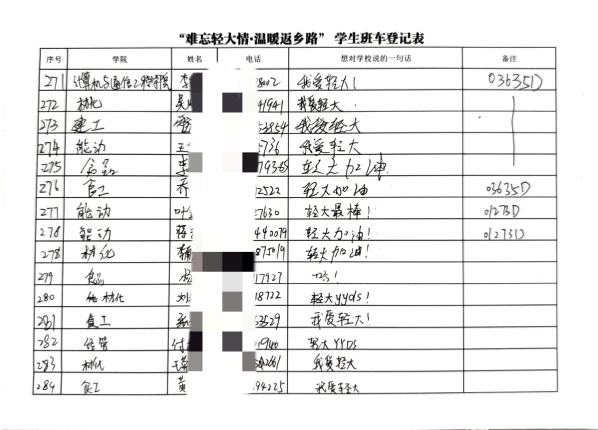 “难忘轻大情·温暖返乡路” 学生班车登记表
序号 学院 姓名 电话 想对学校说的一句话 备注
271 计算机与通信工程学院 李 8002 我爱轻大! 03635D
272 材化 吴 41941 我爱轻大
273 建工 53854 我爱轻大
274 能动 王 5736 我爱轻大
275 食品 李 79345 轻大加油
276 食工 乔 12522 轻大加油 03635D
277 能动 叶 27630 轻大最棒! 01273D
278 能动 蒋 44079 轻大加油! 01273D
278 材化 875019 轻大加油!
279 食品 杨 17927
280 材化 刘 18722 轻大yyds!
281 食工 53529 我爱轻大!
282 经管 付 轻大YYDS
283 材化 我爱轻大
284 食工 黄 94225 我爱轻大